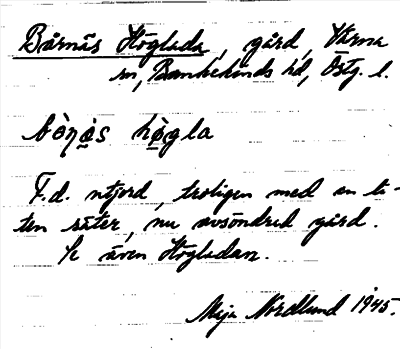 Bårnäs Höglada, gård, Värna
sn, Bankekinds hd, Östg. l.
bò̀ŋås hògla
F.d. utjord, troligen med en li-
ten säter, nu avsöndrad gård.
Se även Högladan.
Maja Nordlund 1945.